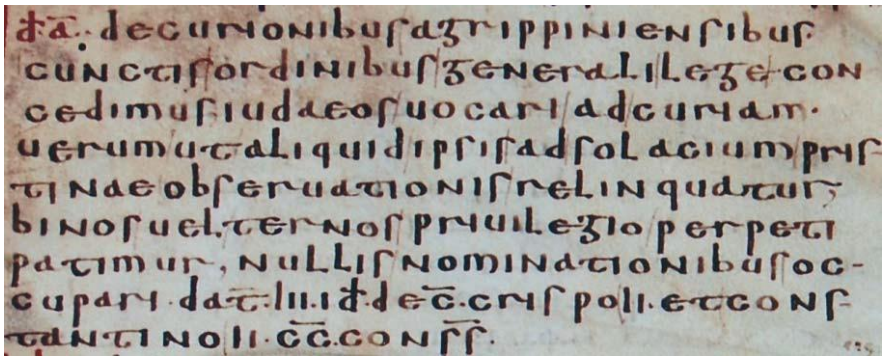 d̄ā. decurionibus agrippiniensibus
cunctis ordinibus generali lege con
cedimus iudaeos uocari ad curiam.
uerum ut aliquid ipsis ad solacium pris
tinae obseruationis relinquatur;
binos uel ternos priuilegio perpeti
patimur, nullis nominationibus oc-
cupari. dat̄. III. id̄. dec̄. crispo II. et cons
tantino II. c̄c̄. cons̄s̄.